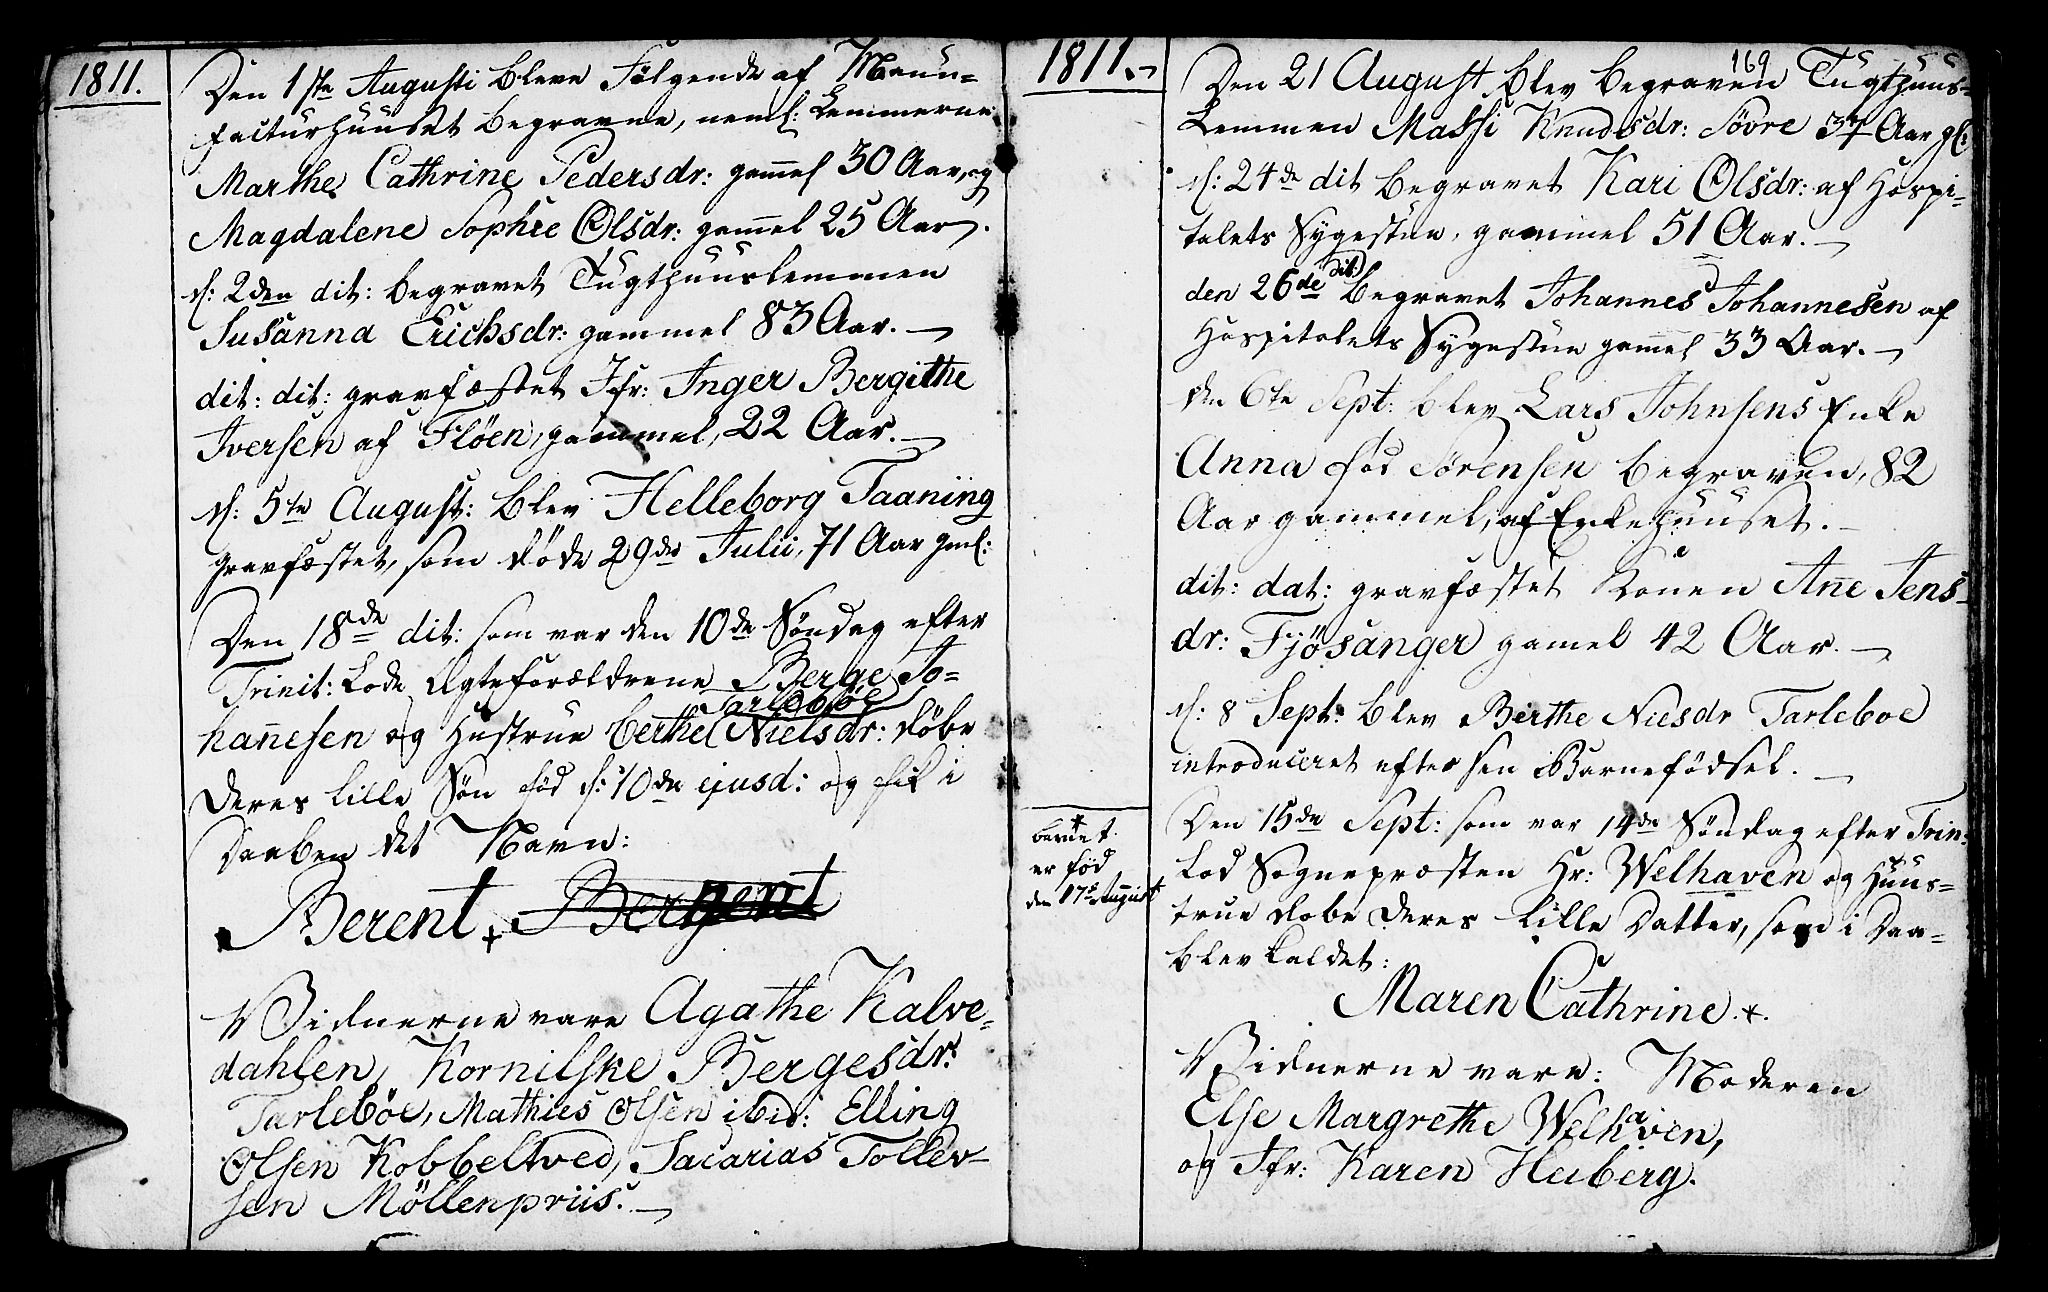 1811.
Den 1ste Augusti bleve Følgende af Manu-
facturhuuset begravne, neml: Lemmerne
Marthe Cathrine Pedersdr: gam̄el 30 Aar, og
Magdalene Sophie Olsdr: gam̄el 25 Aar.
d: 2den dit: begravet Tugthuuslemmen
Susanna Erichsdr: gammel 83 Aar.
dit: dit: gravfæstet Jfr: Inger Bergithe
Iversen af Fløen, gammel, 22 Aar.
d: 5te August: blev Helleborg Taaning
gravfæstet, som døde 29de Julii, 71 Aar gml:
Den 18de dit: som var den 10de Søndag efter
Trinit: Lode Ægteforældrene Berge Jo-
Tarlebøe
han̄esen og Hustrue Berthe Nielsdr: døbe
deres lille Søn fød d: 10de ejusd: og fik i
Daaben det Navn:
Berent + Bergent
Vidnerne vare Agathe Kalve-
dahlen, Kornilske Bergesdr:
Tarlebøe, Mathies Olsen ibid: Elling
Olsen Kobbeltved, Sacarias Tollev-
sen Möllenpriis.
1811.
169
Den 21 August blev begraven Tugthuus-
Lemmen Massi Knudsdr: Søvre 37 Aar gl:
d: 24de dit begravet Kari Olsdr: af Hospi-
talets Sygestue, gammel 51 Aar.
den 26de dit: begravet Johannes Johannesen af
Hospitalets Sygestue gam̄el 33 Aar.
den 6te Sept: blev Lars Johnsens Enke
Anna fød Sørensen begraven, 82
Aar gammel, af Enkehuuset.
dit: dat: gravfæstet Konen An̄e Jens-
dr: Fjøsanger gamel 42 Aar.
d: 8 Sept: blev Birthe Niesdr Tarleboe
introduceret efter sin Barnefødsel.
Den 15de Sept: som var 14de Søndag efter Trin:
Lod Sognepræsten Hr: Welhaven og Huus-
true døbe deres lille Datter, som i Daa-
blev kaldet:
Maren Cathrine. +.
Vidnerne vare: Moderen
Else Margrethe Welhaven,
og Jfr: Karen Heiberg.
+
barnet
er fød
den 17de August